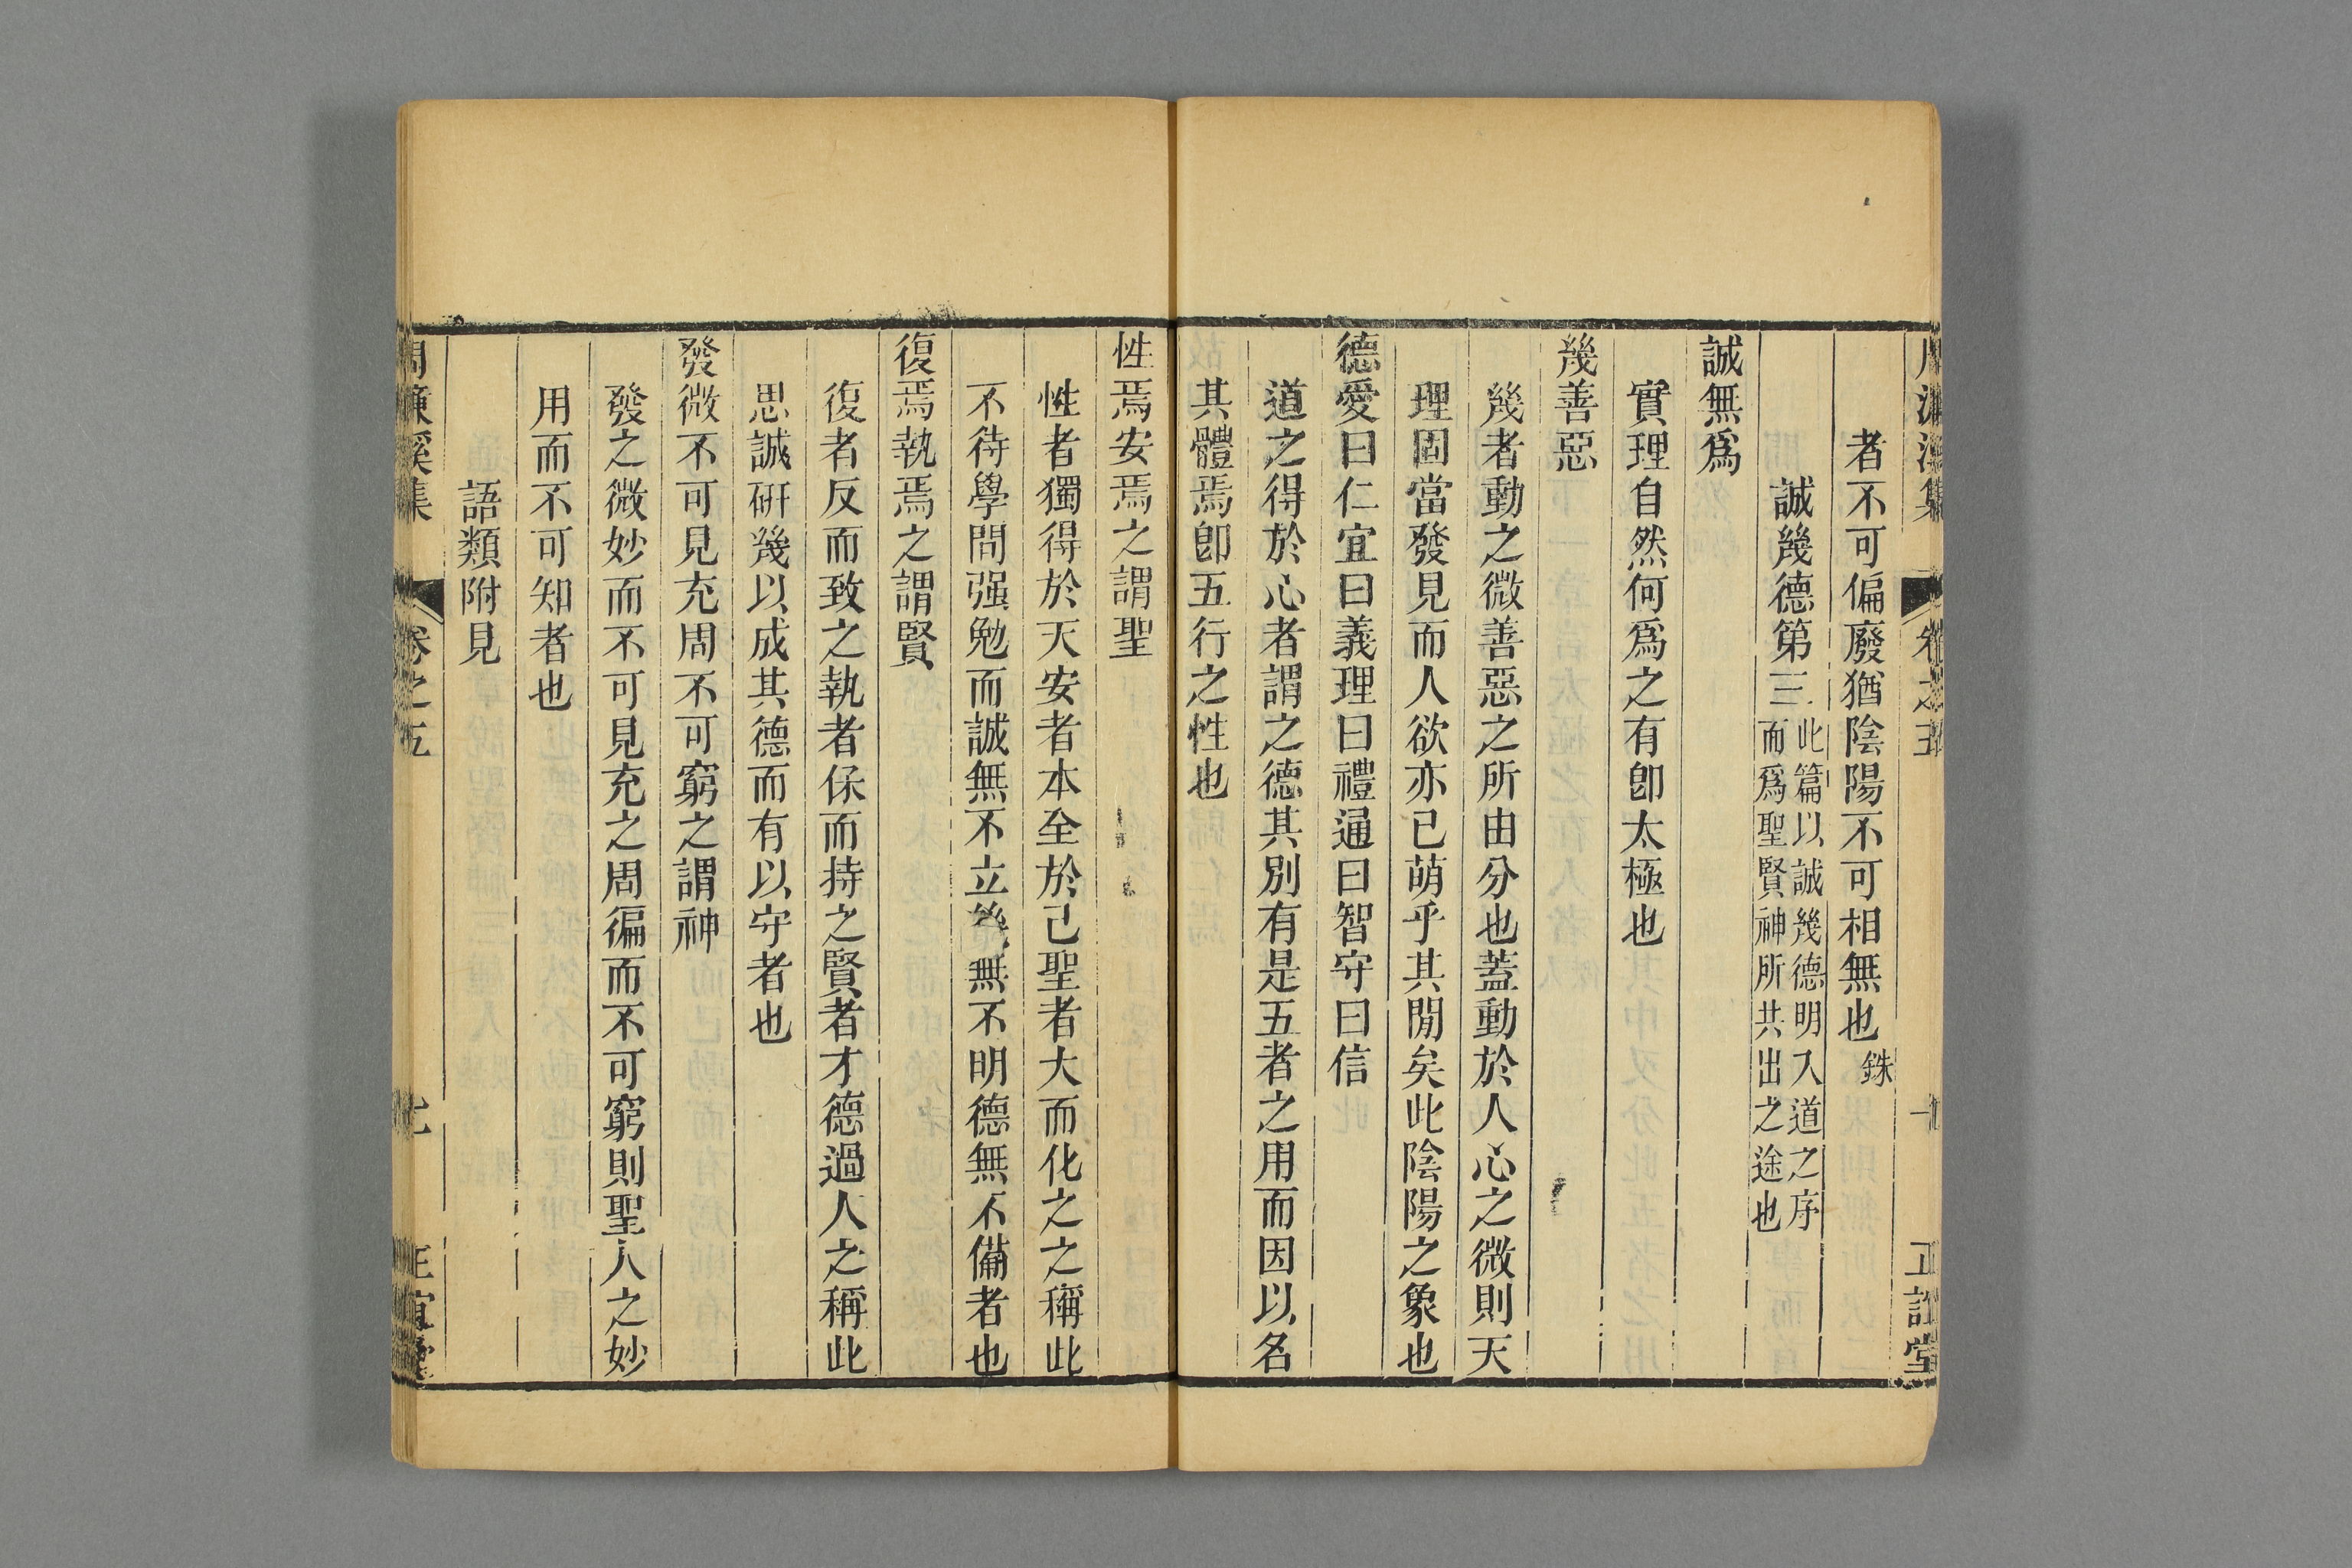 周濂溪集 卷之五 正誼堂
者不可偏廢猶陰陽不可相無也銖
誠幾德第三此篇以誠幾德明入道之序
而爲聖賢神所共出之途也
誠無爲
實理自然何爲之有卽太極也
幾善惡
幾者動之微善惡之所由分也蓋動於人心之微則天
理固當發見而人欲亦已萌乎其閒矣此陰陽之象也
德愛曰仁宜曰義理曰禮通曰智守曰信
道之得於心者謂之德其別有是五者之用而因以名
其體焉卽五行之性也
性焉安焉之謂聖
性者獨得於天安者本全於己聖者大而化之之稱此
不待學問强勉而誠無不立幾無不明德無不備者也
復焉執焉之謂賢
復者反而致之執者保而持之賢者才德過人之稱此
思誠硏幾以成其德而有以守者也
發微不可見充周不可窮之謂神
發之微妙而不可見充之周徧而不可窮則聖人之妙
用而不可知者也
語類附見
周濂溪集 卷之五 七 正誼堂